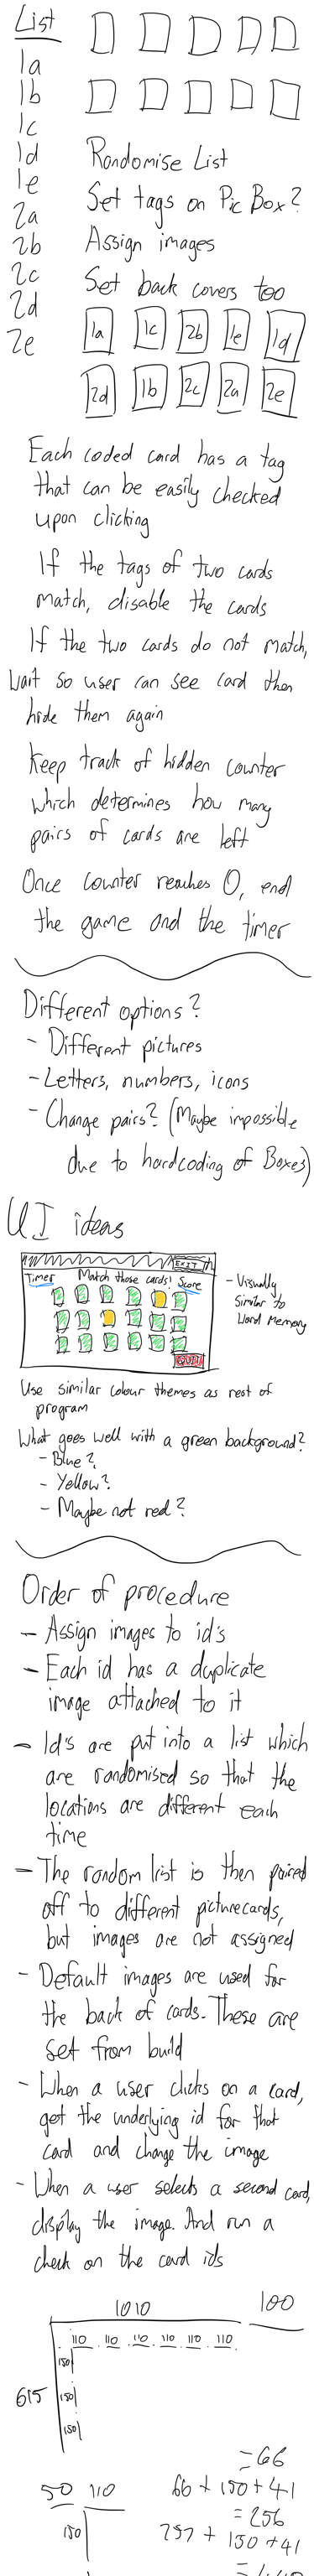 List
1a
1b
1c
1d
1e
2a
2b
2c
2d
2e
Randomise List
Set tags on Pic Box?
Assign images
Set back covers too
1a 1c 2b 1e 1d
2d 1b 2c 2a 2e
Each coded card has a tag
that can be easily checked
upon clicking
If the tags of two cards
match, disable the cards
If the two cards do not match,
wait so user can see card then
hide them again
Keep track of hidden counter
which determines how many
pairs of cards are left
Once counter reaches 0, end
the game and the timer
Different options?
- Different pictures
- Letters, numbers, icons
- Change pairs? (Maybe impossible
due to hardcoding of Boxes)
UI ideas
EXIT
Timer Match those cards! Score
- Visually
Similar to
Word Memory
Use similar colour themes as rest of
program
What goes well with a green background?
- Blue?
- Yellow?
- Maybe not red?
Order of procedure
- Assign images to id's
- Each id has a duplicate
image attached to it
- Id's are put into a list which
are randomised so that the
locations are different each
time
- The random list is then paired
off to different picturecards,
but images are not assigned
- Default images are used for
the back of cards. These are
set from build
- When a user clicks on a card,
get the underlying id for that
card and change the image
- When a user selects a second card,
display the image. And run a
check on the card ids
1010 100
110 110 110 110 110 110
150
615 150
150
= 66
50 110 66 + 150 + 41
= 256
150 257 + 150 + 41